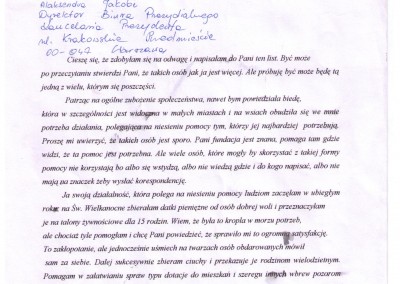 Aleksandra Jakobe
Dyrektor Biura Prezydialnego
Kancelaria Prezydenta
ul. Krakowskie Przedmieście
00-047 Warszawa
Cieszę się, że zdobyłam się na odwagę i napisałam do Pani ten list. Być może
po przeczytaniu stwierdzi Pani, że takich osób jak ja jest więcej. Ale próbuję być może będę tą
jedną z wielu, którym się poszczęści.
Patrząc na ogólne zubożenie społeczeństwa, nawet bym powiedziała biedę,
która w szczególności jest widoczna w małych miastach i na wsiach obudziła się we mnie
potrzeba działania, polegająca na niesieniu pomocy tym, którzy jej najbardziej potrzebują.
Proszę mi uwierzyć, że takich osób jest sporo. Pani fundacja jest znana, pomaga tam gdzie
widzi, że ta pomoc jest potrzebna. Ale wiele osób, które mogły by skorzystać z takiej formy
pomocy nie korzystają bo albo się wstydzą, albo nie wiedzą gdzie i do kogo napisać, albo nie
mają na znaczek żeby wysłać korespondencję.
Ja swoją działalność, która polega na niesieniu pomocy ludziom zaczęłam w ubiegłym
roku, na Św. Wielkanocne zbierałam datki pieniężne od osób dobrej woli i przeznaczyłam
je na talony żywnościowe dla 15 rodzin. Wiem, że była to kropla w morzu potrzeb,
ale chociaż tyle pomogłam i chcę Pani powiedzieć, że sprawiło mi to ogromną satysfakcję.
To zakłopotanie, ale jednocześnie uśmiech na twarzach osób obdarowanych mówił
sam za siebie. Dalej sukcesywnie zbieram ciuchy i przekazuje je rodzinom wielodzietnym.
Pomagam w załatwianiu spraw typu dotacje do mieszkań i szeregu innych wbrew pozorom